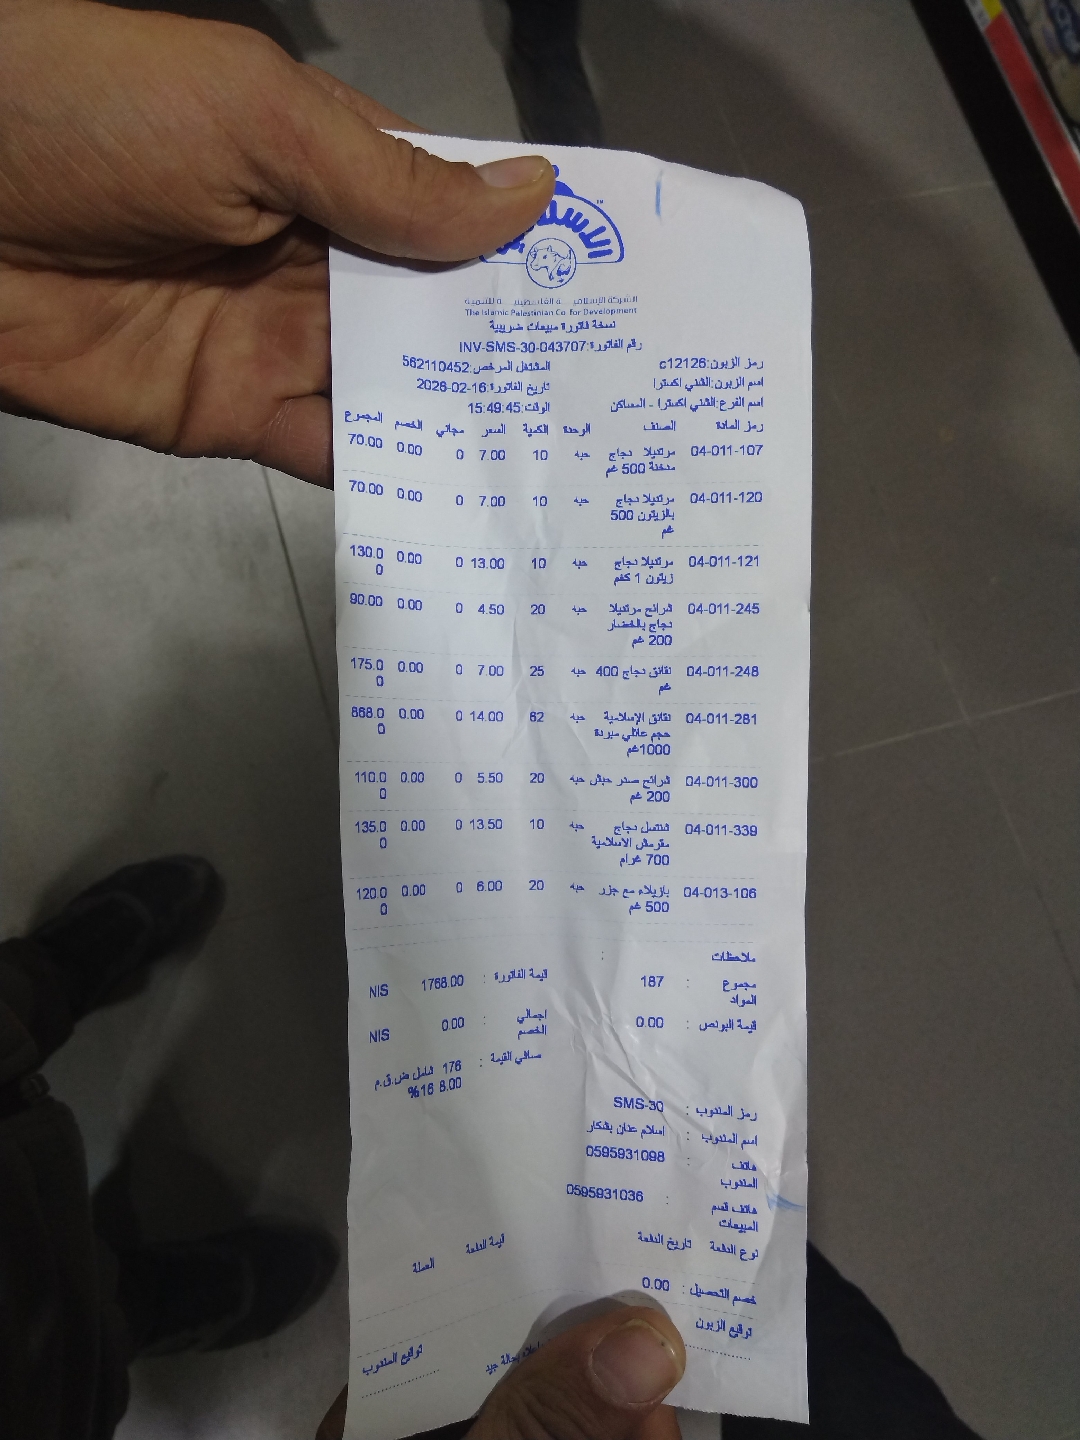 الاسلامية
™
الشركة الإسلامية الفلسطينية للتنمية
The Islamic Palestinian Co. for Development
نسخة فاتورة مبيعات ضريبية
رقم الفاتورة:INV-SMS-30-043707
رمز الزبون:c12126 المشتغل المرخص:562110452
اسم الزبون:الشني اكسترا تاريخ الفاتورة:2026-02-16
اسم الفرع:الشني اكسترا - المساكن الوقت:15:49:45
رمز المادة الصنف الوحدة الكمية السعر مجاني الخصم المجموع
04-011-107 مرتديلا دجاج حبه 10 7.00 0 0.00 70.00
مدخنة 500 غم
04-011-120 مرتديلا دجاج حبه 10 7.00 0 0.00 70.00
بالزيتون 500
غم
04-011-121 مرتديلا دجاج حبه 10 13.00 0 0.00 130.0
زيتون 1 كغم 0
04-011-245 شرائح مرتديلا حبه 20 4.50 0 0.00 90.00
دجاج بالخضار
200 غم
04-011-248 نقانق دجاج 400 حبه 25 7.00 0 0.00 175.0
غم 0
04-011-281 نقانق الإسلامية حبه 62 14.00 0 0.00 868.0
حجم عائلي مبردة 0
1000غم
04-011-300 شرائح صدر حبش حبه 20 5.50 0 0.00 110.0
200 غم 0
04-011-339 شنتسل دجاج حبه 10 13.50 0 0.00 135.0
مقرمش الاسلامية 0
700 غرام
04-013-106 بازيلاء مع جزر حبه 20 6.00 0 0.00 120.0
500 غم 0
ملاحظات :
مجموع : 187 قيمة الفاتورة : 1768.00 NIS
المواد
قيمة البونص : 0.00 اجمالي : 0.00 NIS
الخصم
صافي القيمة : 176 شامل ض.ق.م
8.00 16%
رمز المندوب : SMS-30
اسم المندوب : اسلام عدنان بشكار
هاتف : 0595931098
المندوب
هاتف قسم : 0595931036
المبيعات
نوع الدفعة تاريخ الدفعة قيمة الدفعة العملة
خصم التحصيل : 0.00
توقيع الزبون توقيع المندوب
بحالة جيد